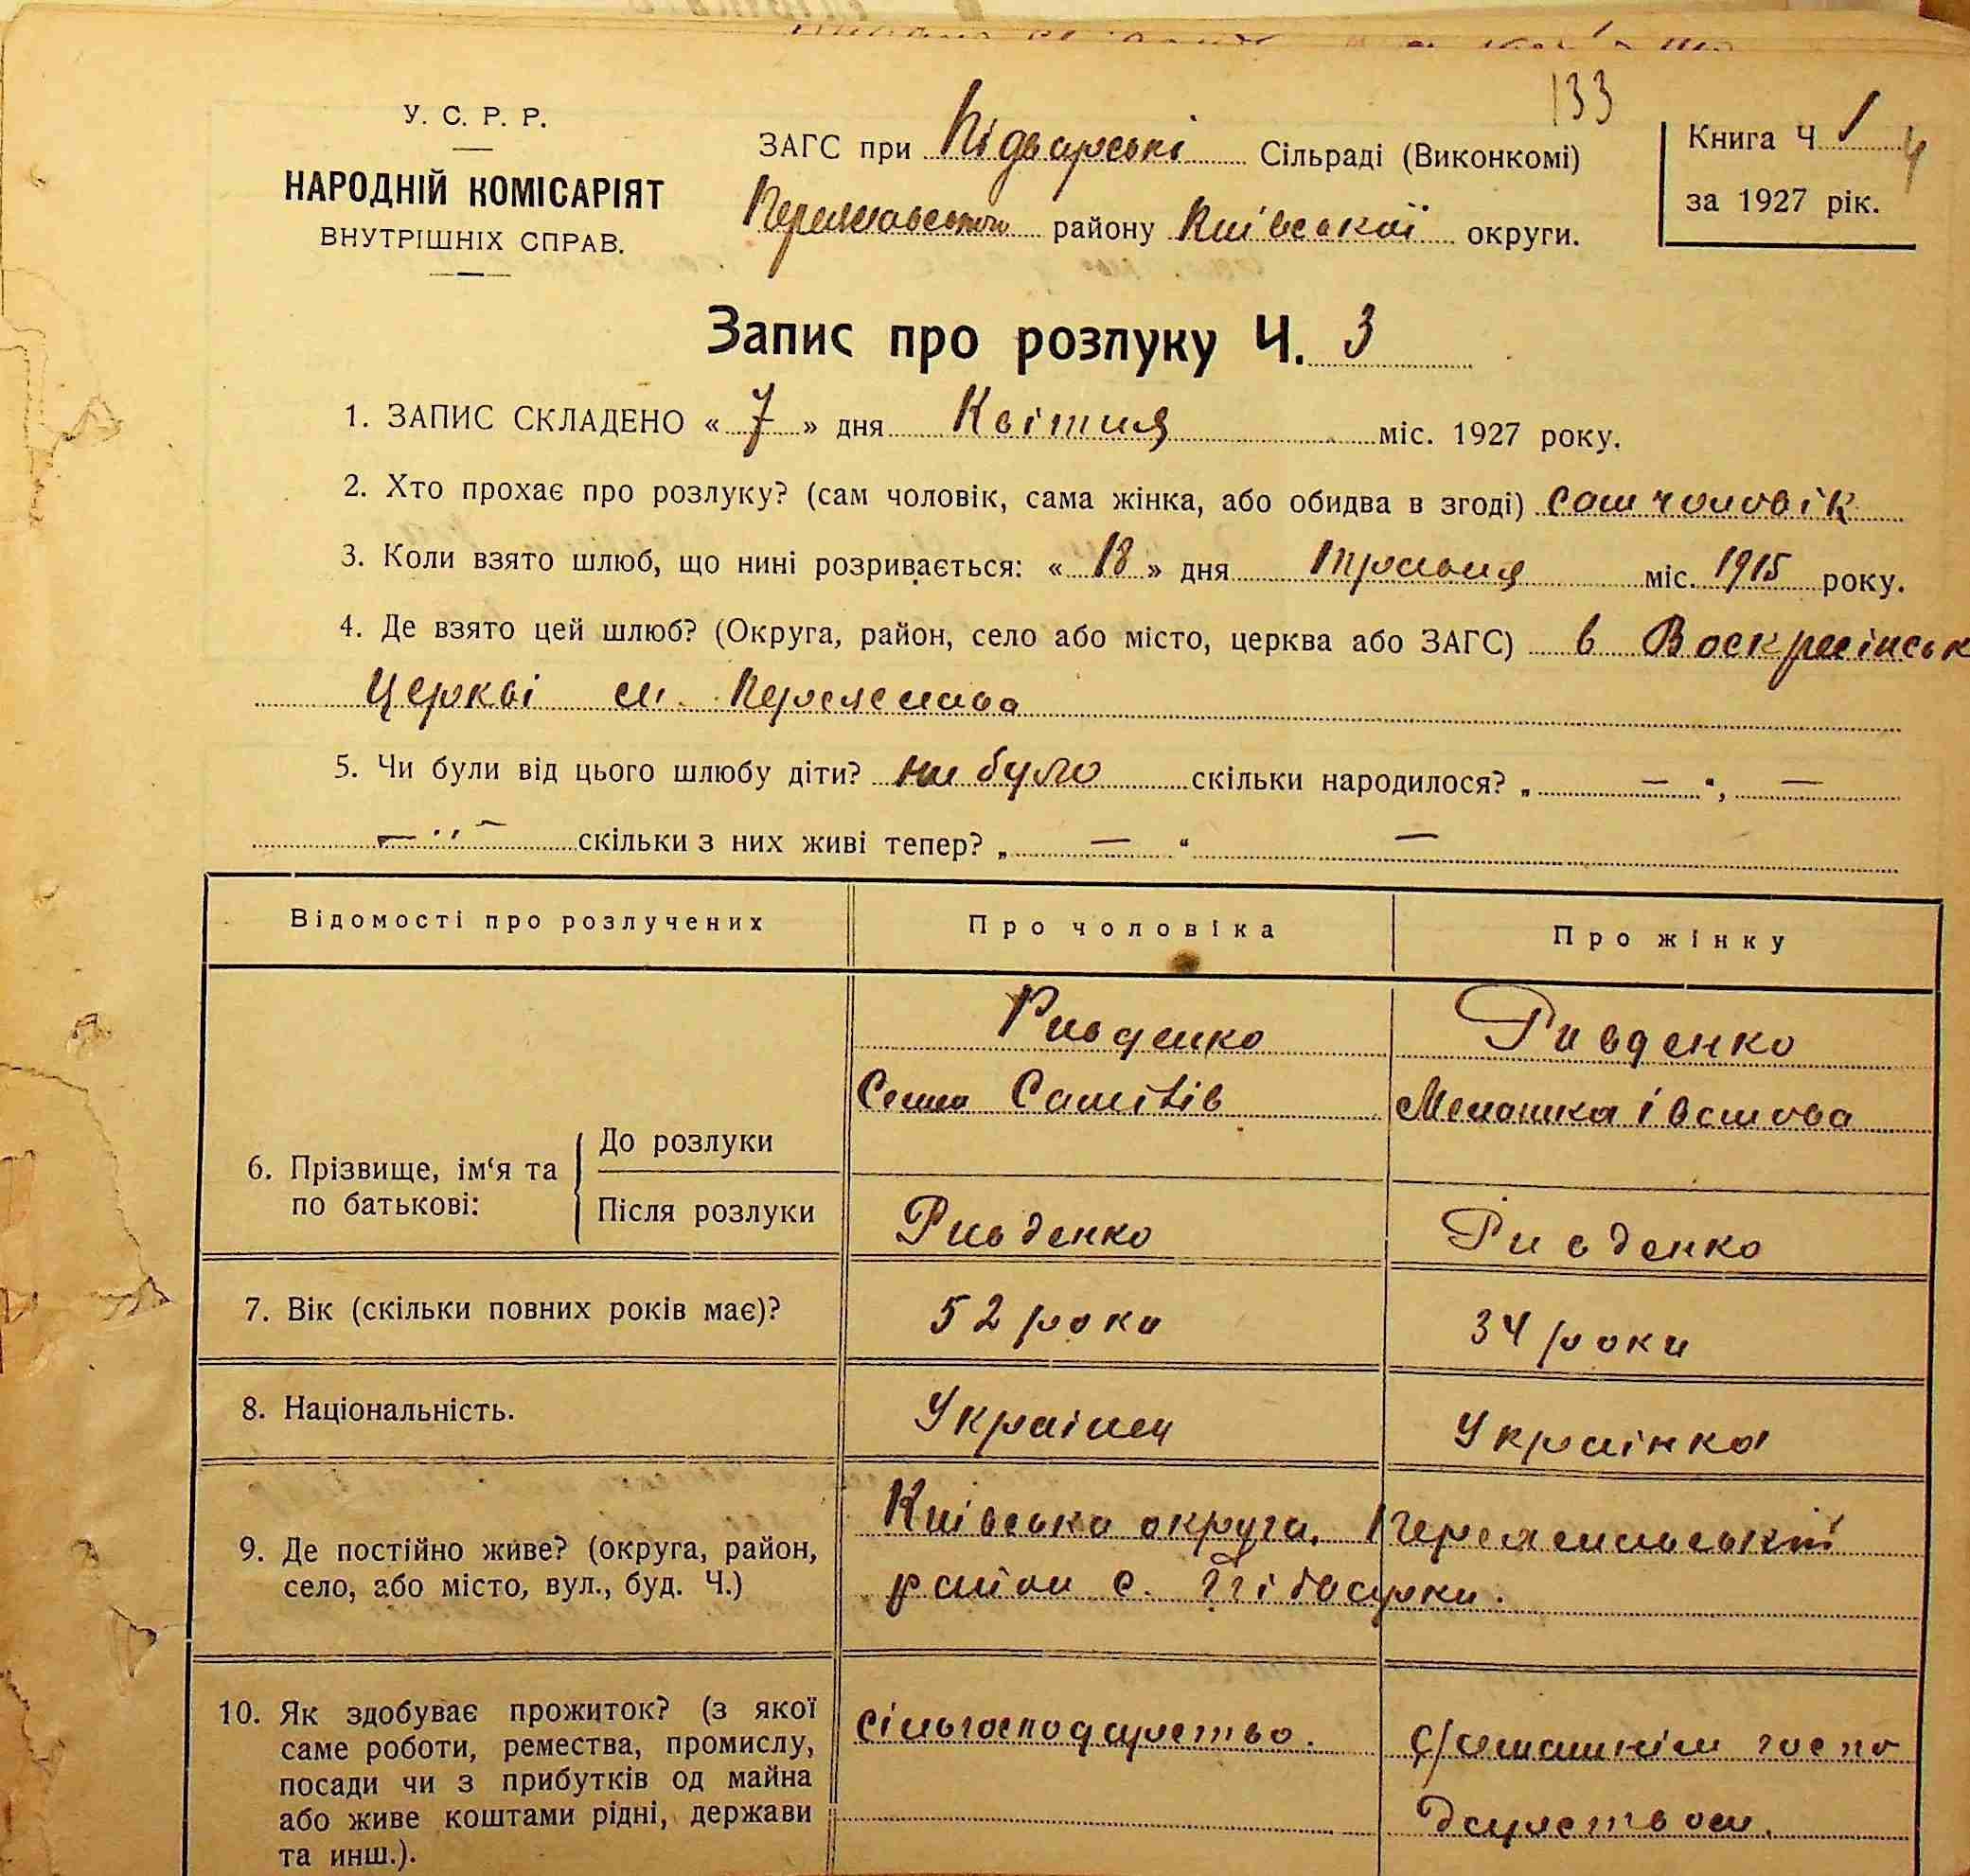 133
У. С. Р. Р.
НАРОДНІЙ КОМІСАРІЯТ
ВНУТРІШНІХ СПРАВ.
ЗАГС при Підварські Сільраді (Виконкомі)
району Київської округи.
Книга Ч 1
за 1927 рік.
Запис про розлуку Ч. 3
1. ЗАПИС СКЛАДЕНО « 7 » дня Квітня міс. 1927 року.
2. Хто прохає про розлуку? (сам чоловік, сама жінка, або обидва в згоді) сам чоловік
3. Коли взято шлюб, що нині розривається: « 18 » дня Травня міс. 1915 року.
4. Де взято цей шлюб? (Округа, район, село або місто, церква або ЗАГС) в Воскресінськ
Церкві м. Переяслава
5. Чи були від цього шлюбу діти? не було скільки народилося? „ — “, —
— „ — скільки з них живі тепер? „ — “ —
Відомості про розлучених Про чоловіка Про жінку
Ривденко Ривденко
Сем
Меланка
6. Прізвище, ім‘я та по батькові:
До розлуки
Після розлуки Ривденко Ривденко
7. Вік (скільки повних років має)? 52 роки 34 роки
8. Національність. Українец Українка
9. Де постійно живе? (округа, район,
село, або місто, вул., буд. Ч.)
Київська округа, Переяславський
район с. Підварки.
10. Як здобуває прожиток? (з якої
саме роботи, ремества, промислу,
посади чи з прибутків од майна
або живе коштами рідні, держави
та инш.).
сільгосподарство.
домашнім госпо
дарством.